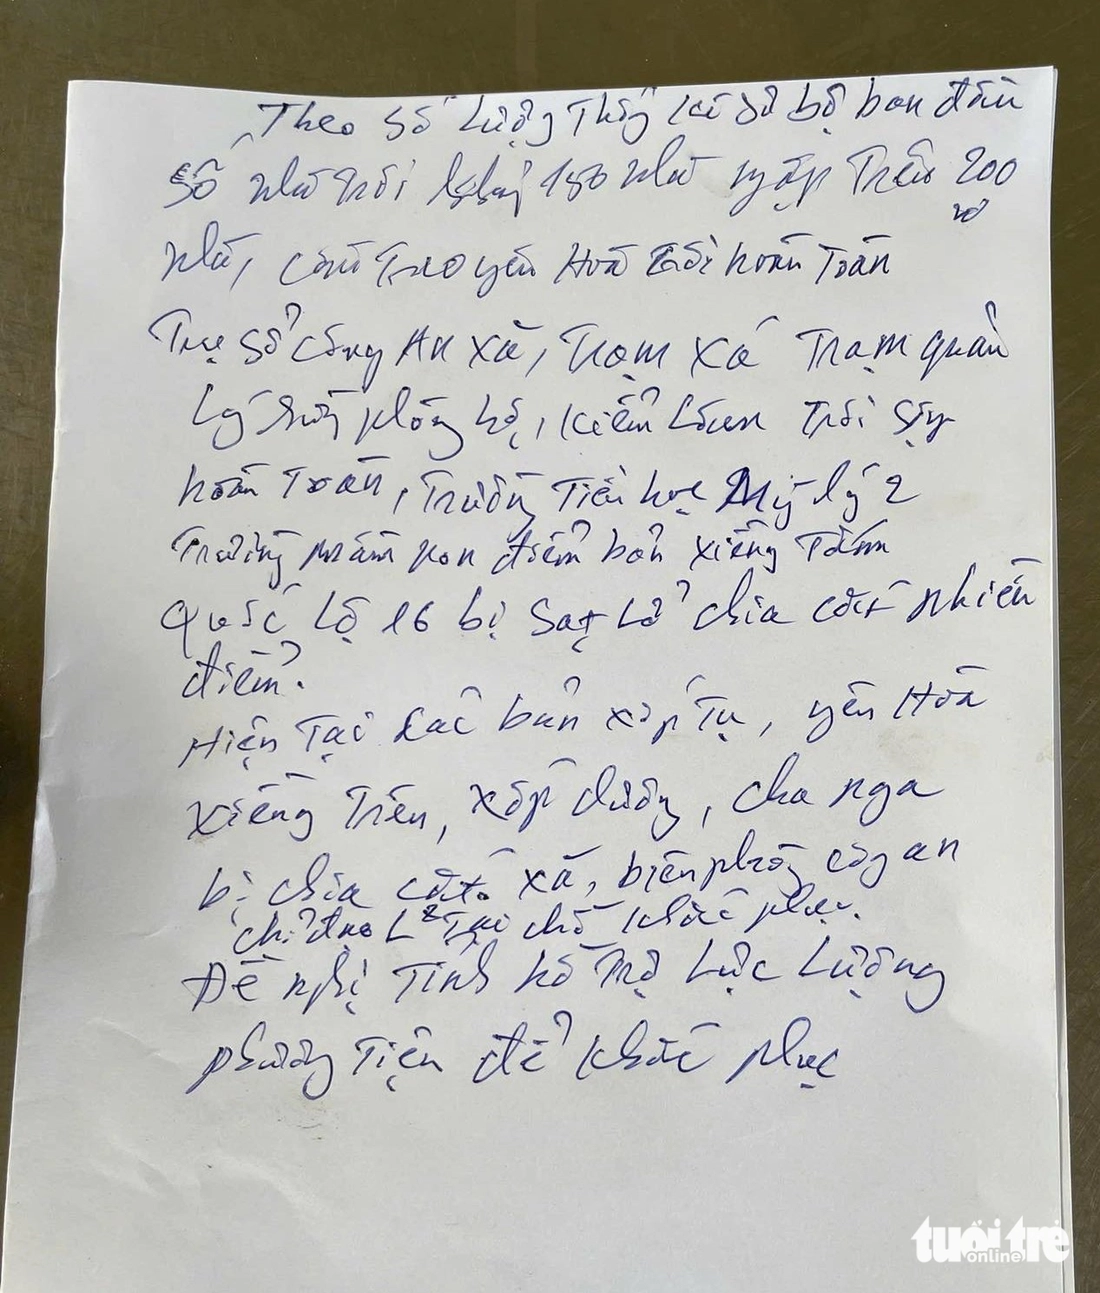 Theo số lượng thống kê sơ bộ ban đầu
số nhà trôi 180 nhà ngập trên 200
nhà, cầu treo yên Hoà trôi hoàn toàn
Trụ sở công An xã, Trạm xá Trạm quản
Lý rừng phòng hộ, kiểm Lâm trôi sập
hoàn toàn, Trường Tiểu học Mỹ lý 2
Trường mầm non điểm bản xiềng Tắm
Quốc Lộ 16 bị Sạt Lở chia cắt nhiều
điểm.
Hiện Tại các bản xốp Tụ, yên Hoà
xiềng Trên, xốp dương, cha nga
bị chia cắt xã, biên phòng công an
chỉ đạo L² Tại chỗ khắc phục.
Đề nghị Tỉnh hỗ Trợ Lực Lượng
phương Tiện để khắc phục
tuổi trẻ
online